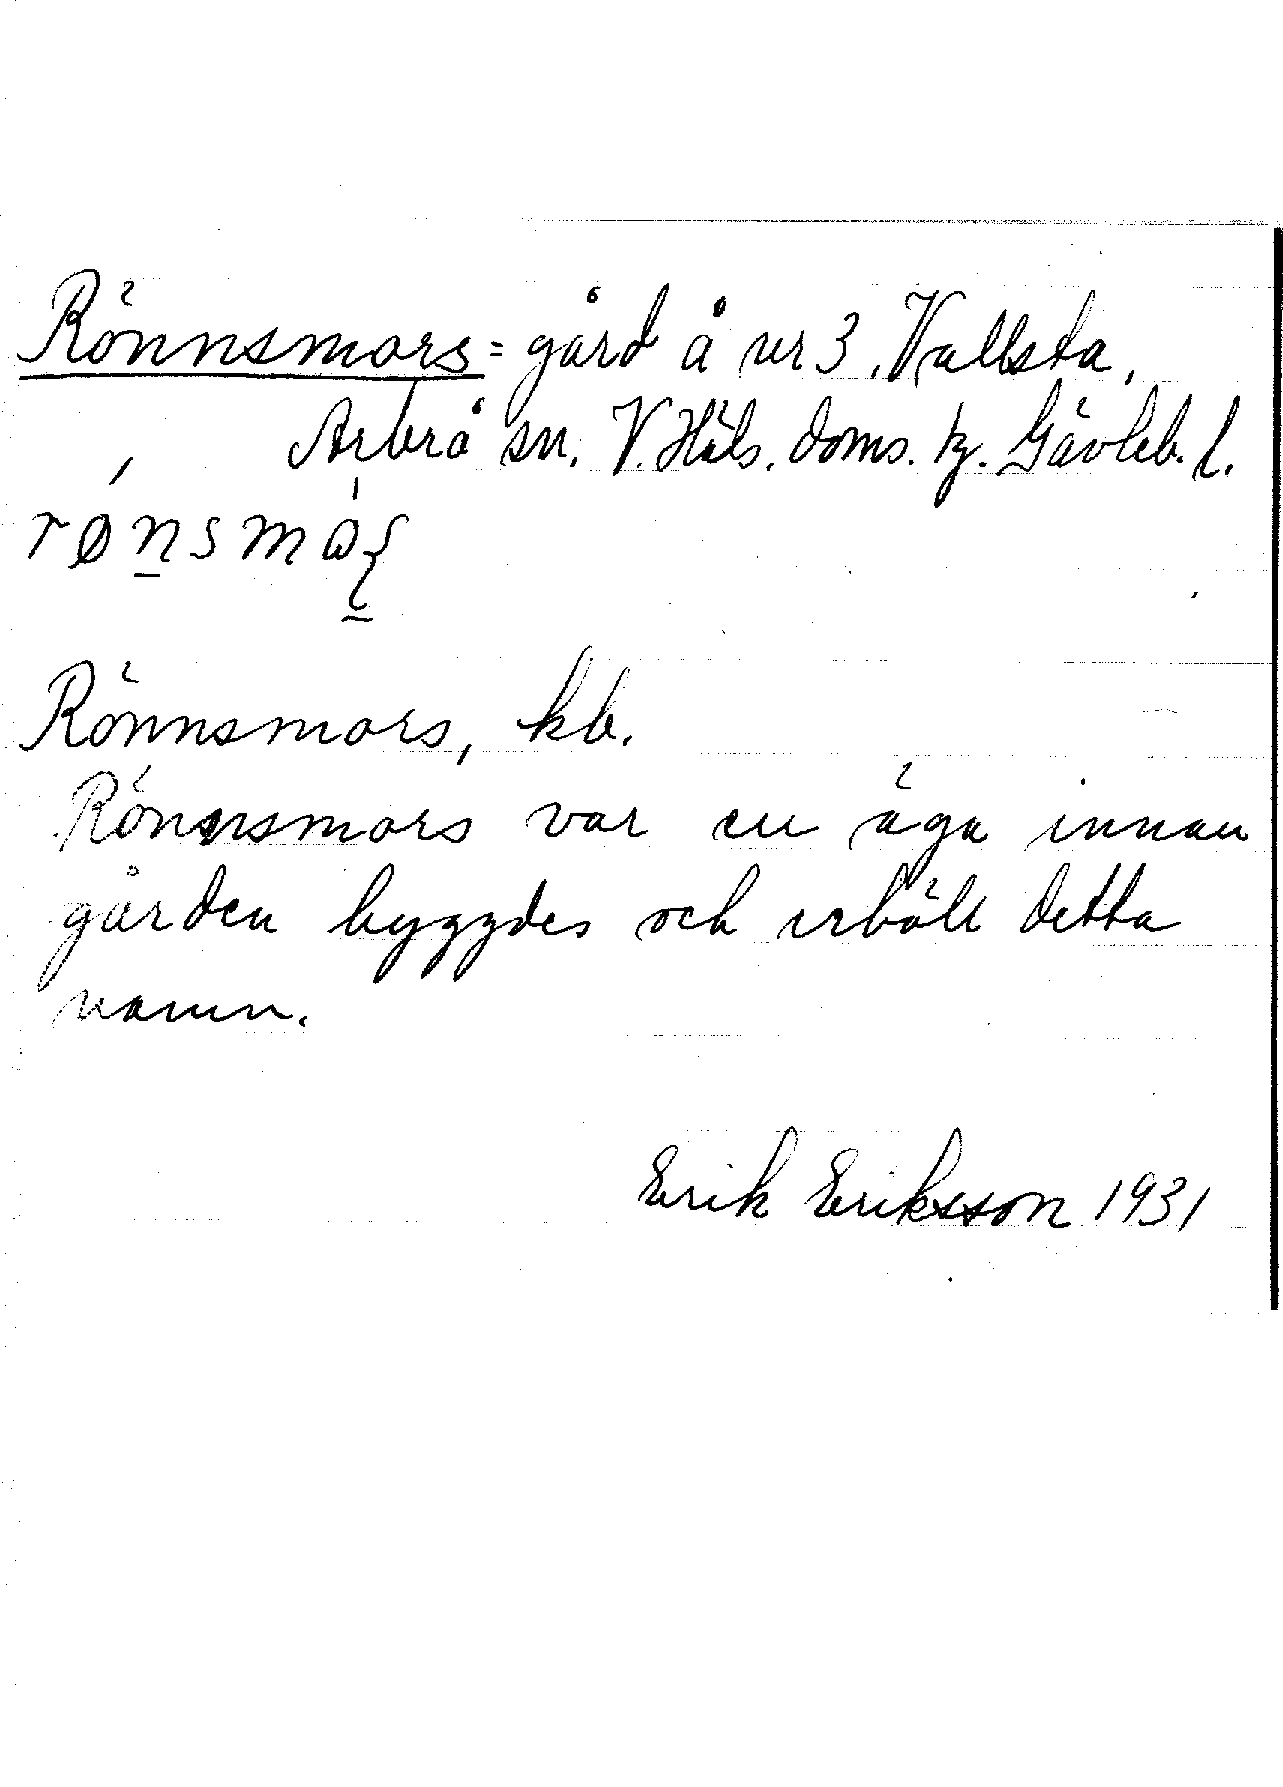 Rönnsmors = gård å nr 3, Vallsta,
Arbrå sn. V. Häls. doms. tg. Gävleb. l.
Rönnsmors, kb.
Rönnsmors var en äga innan
gården byggdes och erhöll detta
namn.
Erik Eriksson 1931